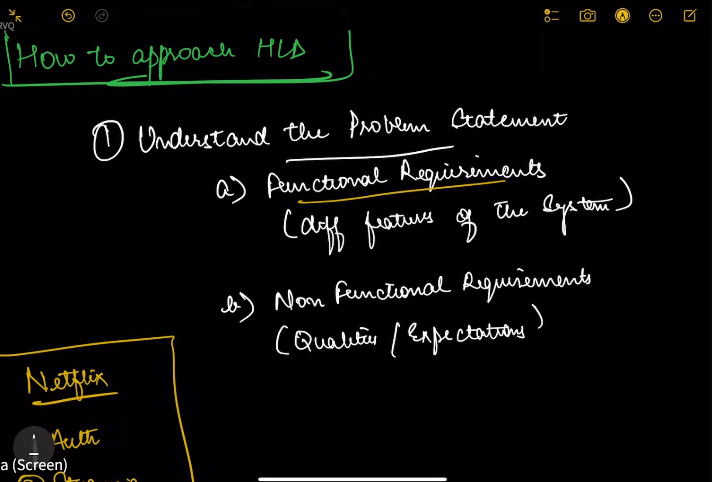 RVQ
How to approach HLD
① Understand the Problem Statement
a) Functional Requirements
(diff features of the System)
b) Non Functional Requirements
(Qualities / Expectations)
Netflix
Auth
a (Screen)